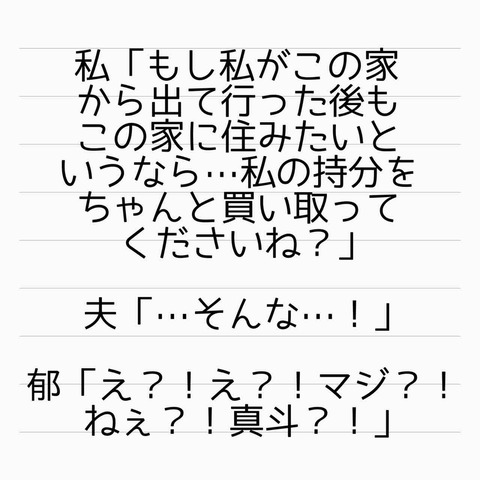 私「もし私がこの家
から出て行った後も
この家に住みたいと
いうなら…私の持分を
ちゃんと買い取って
くださいね？」
夫「…そんな…！」
郁「え？！え？！マジ？！
ねぇ？！真斗？！」